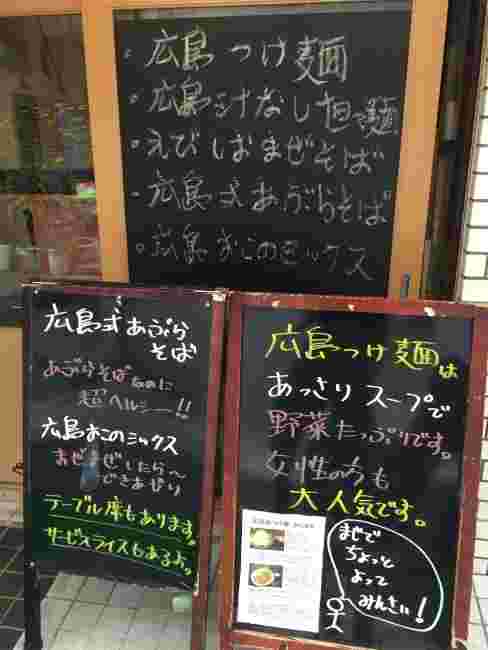 ・広島つけ麺
・広島汁なし担々麺
・えびしおまぜそば
・広島式あぶらそば
・広島おこのミックス
広島式あぶら
そば
あぶらそばなのに
超ヘルシー!!
広島おこのミックス
まぜまぜしたら〜
できあがり
テーブル席もあります。
サービスライスもあるよ。
広島つけ麺は
あっさりスープで
野菜たっぷりです。
女性の方も
大人気です。
まじで
ちょっと
よって
みんさい!